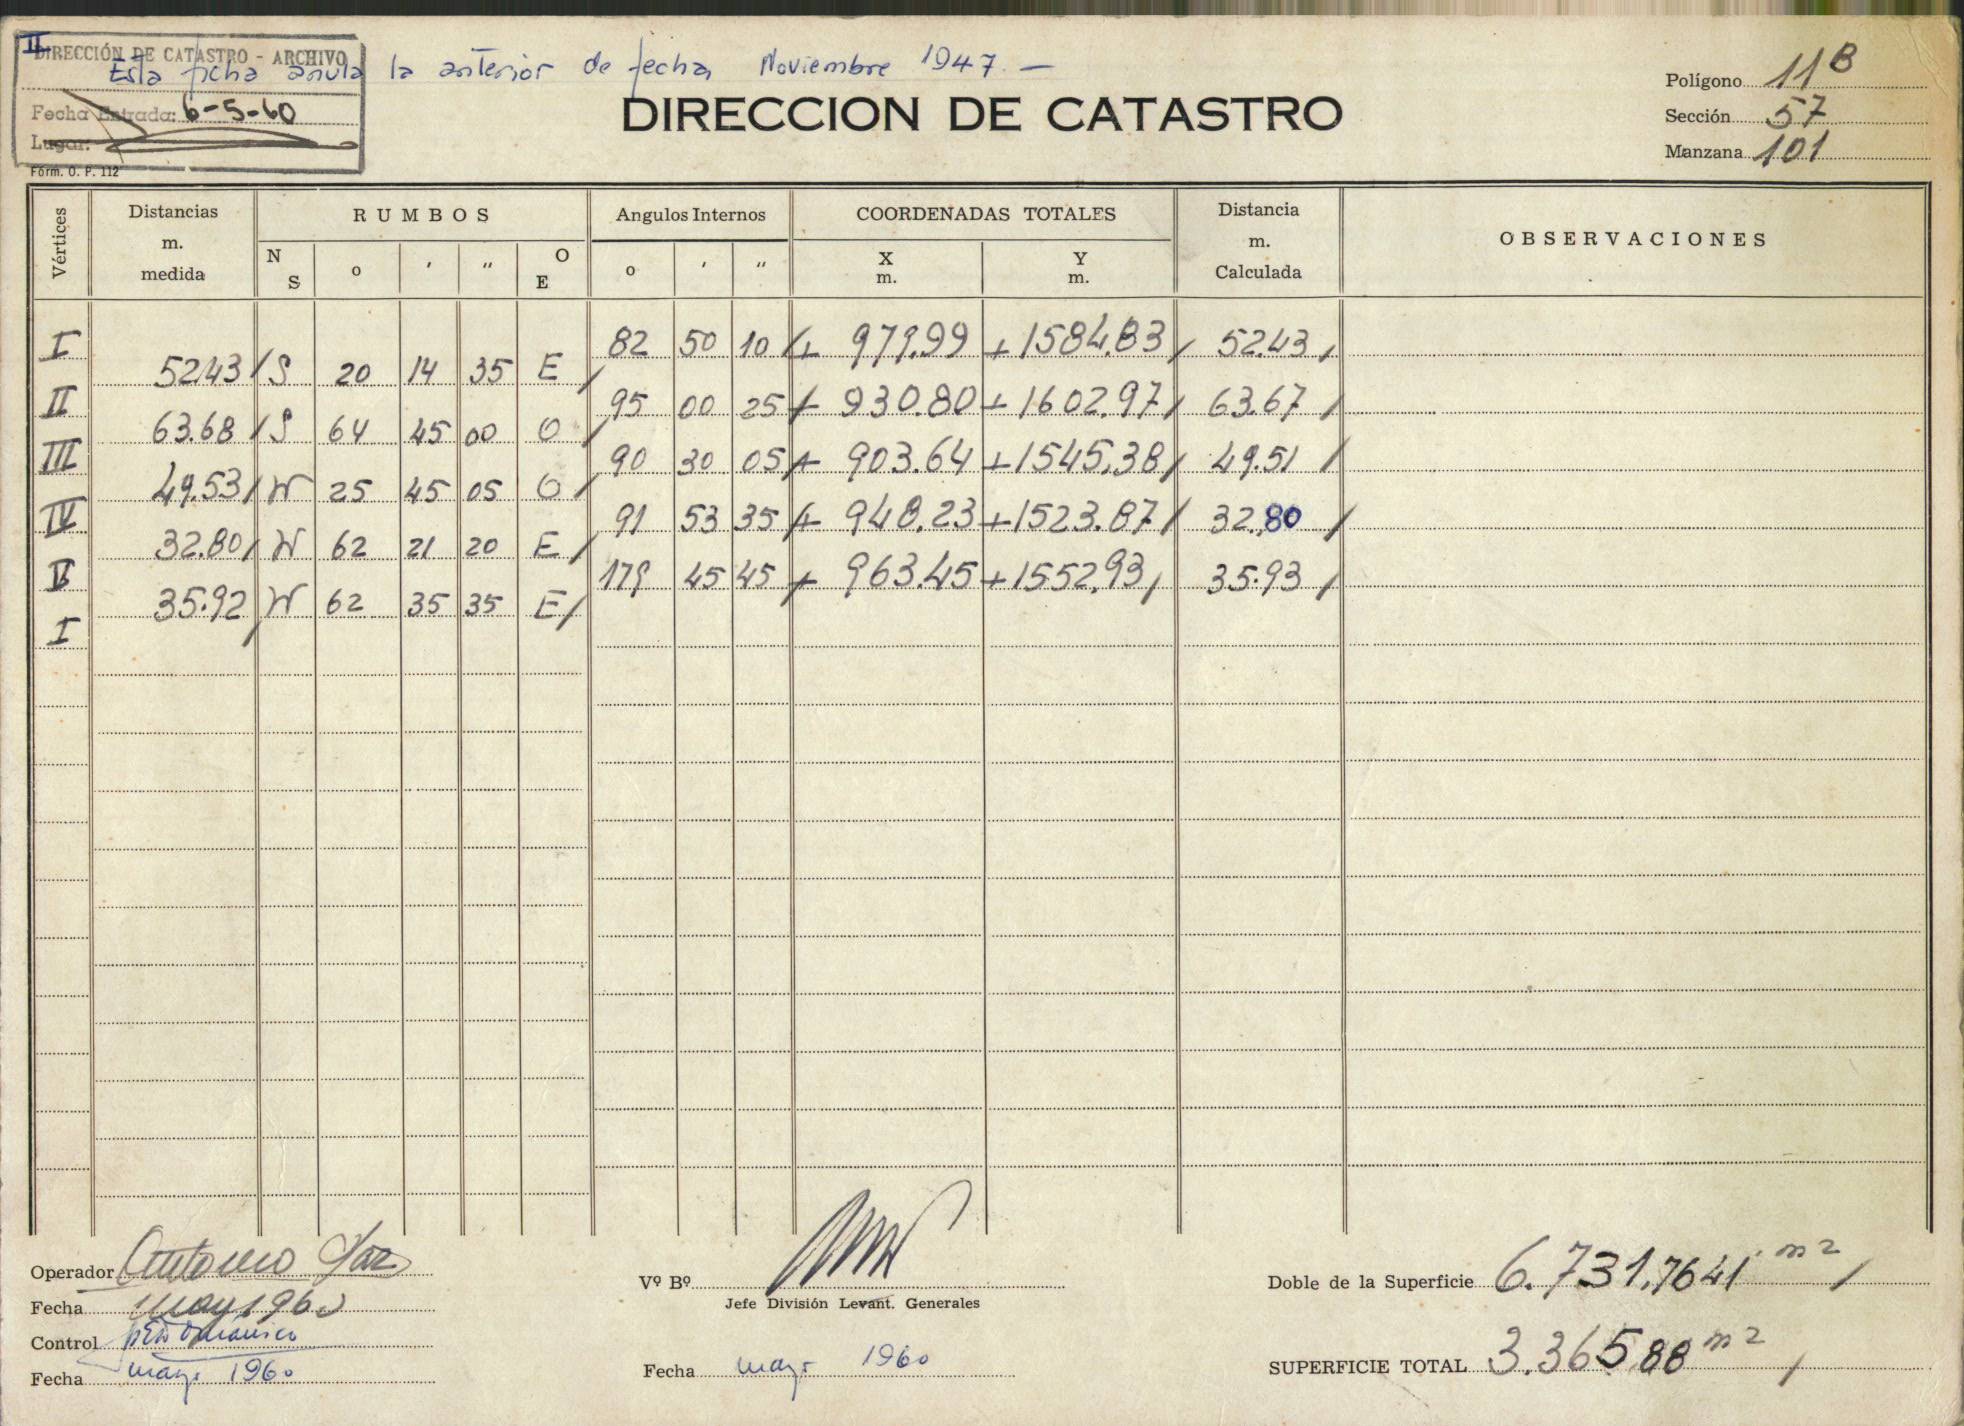 II
DIRECCIÓN DE CATASTRO - ARCHIVO
Esta ficha anula la anterior de fecha Noviembre 1947. —
Fecha Entrada: 6-5-60
Lugar:
Form. O. P. 112
DIRECCION DE CATASTRO
Polígono 11 B
Sección 57
Manzana 101
Vértices
Distancias m. medida
RUMBOS
N S ° ' " O E
Angulos Internos
° ' "
COORDENADAS TOTALES
X m. Y m.
Distancia m. Calculada
OBSERVACIONES
I 82 50 10 + 979.99 + 1584.83 52.43
52.43 S 20 14 35 E
II 95 00 25 + 930.80 + 1602.97 63.67
63.68 S 64 45 00 O
III 90 30 05 + 903.64 + 1545.38 49.51
49.53 N 25 45 05 O
IV 91 53 35 + 948.23 + 1523.87 32.80
32.80 N 62 21 20 E
V 179 45 45 + 963.45 + 1552.93 35.93
35.92 N 62 35 35 E
I
Operador Antonio
Fecha mayo 1960
Control
Fecha mayo 1960
Vº Bº
Jefe División Levant. Generales
Fecha mayo 1960
Doble de la Superficie 6.731,7641 m2
SUPERFICIE TOTAL 3.365,88 m2